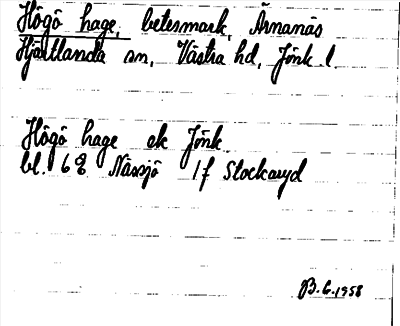 Högö hage, betesmark, Ärnanäs
Hjältlanda sn, Västra hd, Jönk l.
Högö hage ek Jönk.
bl. 6 E Nässjö 1f Stockaryd
B.G. 1958